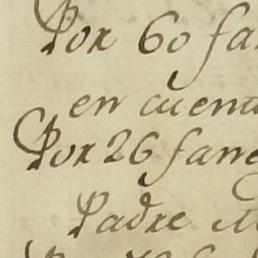 Por 60 fa
en cuent
Por 26 fane
Padre